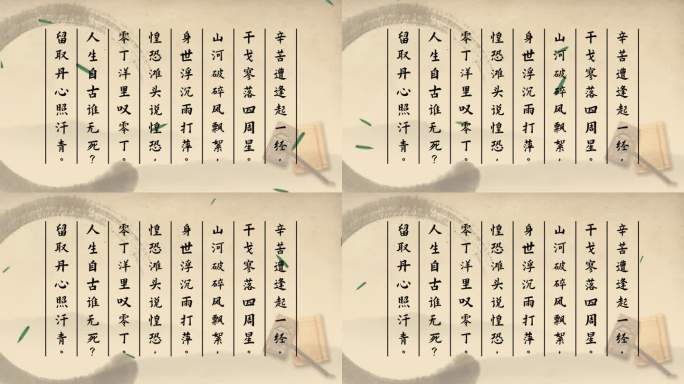 辛苦遭逢起一经，
干戈寥落四周星。
山河破碎风飘絮，
身世浮沉雨打萍。
惶恐滩头说惶恐，
零丁洋里叹零丁。
人生自古谁无死？
留取丹心照汗青。
辛苦遭逢起一经，
干戈寥落四周星。
山河破碎风飘絮，
身世浮沉雨打萍。
惶恐滩头说惶恐，
零丁洋里叹零丁。
人生自古谁无死？
留取丹心照汗青。
辛苦遭逢起一经，
干戈寥落四周星。
山河破碎风飘絮，
身世浮沉雨打萍。
惶恐滩头说惶恐，
零丁洋里叹零丁。
人生自古谁无死？
留取丹心照汗青。
辛苦遭逢起一经，
干戈寥落四周星。
山河破碎风飘絮，
身世浮沉雨打萍。
惶恐滩头说惶恐，
零丁洋里叹零丁。
人生自古谁无死？
留取丹心照汗青。